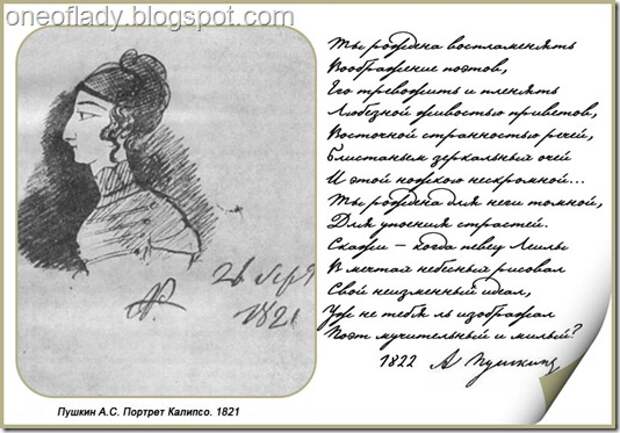 oneoflady.blogspot.com
Ты рождена воспламенять
Воображение поэтов,
Его тревожить и пленять
Любезной живостью приветов,
Восточной странностью речей,
Блистаньем зеркальных очей
И этой ножкою нескромной...
Ты рождена для неги томной,
Для упоения страстей.
Скажи — когда певец Леилы
В мечтах небесных рисовал
Свой неизменный идеал,
Уж не тебя ль изображал
Поэт мучительный и милый?
1822 А Пушкинъ
26
1821
Пушкин А.С. Портрет Калипсо. 1821